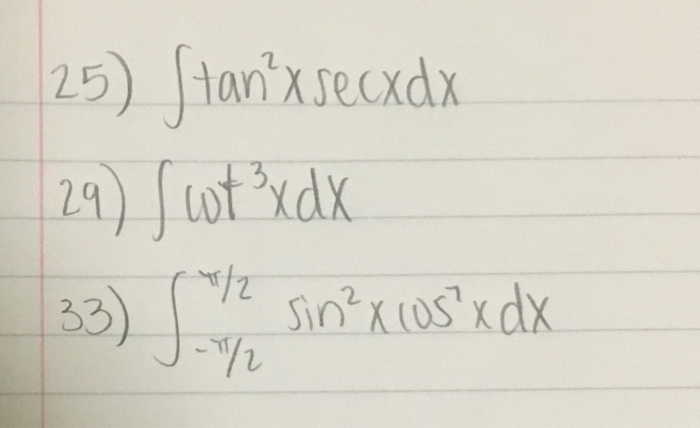 25) ∫tan²x secx dx
29) ∫cot³x dx
33) ∫_{-π/2}^{π/2} sin²x cos⁷x dx